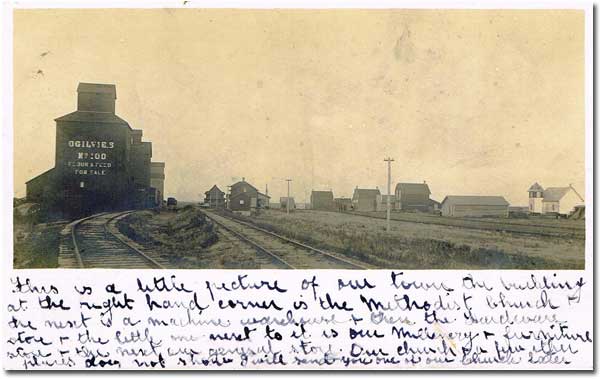 OGILVIE'S
No 100
FLOUR & FEED
FOR SALE
This is a little picture of our town the building
at the right hand corner is the Methodist Church &
the next is a machine warehouse & then the hardware
store & the little one next to it is our Millinery & furniture
store & the next our general store. Our church & a few other
places does not show I will send you one of our Church later